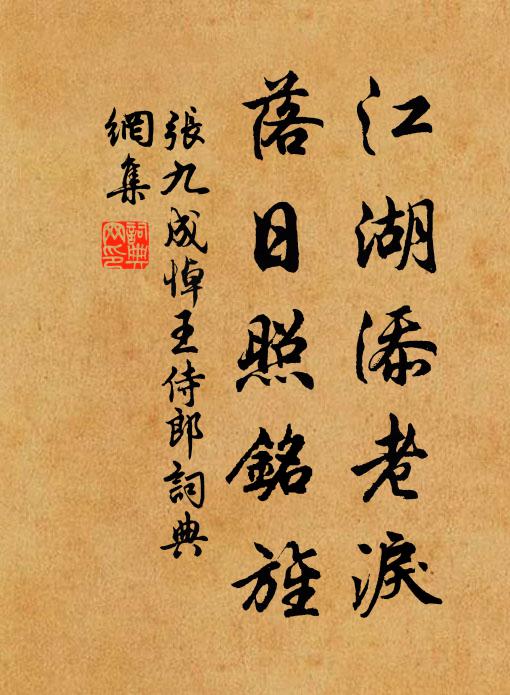 江湖添老淚
落日照銘旌
張九成悼王侍郎詞典
網集
詞典網印